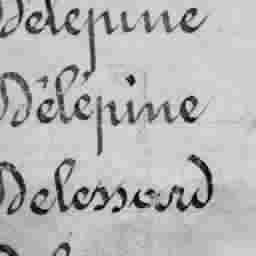 Delepine
Délépine
Delessard